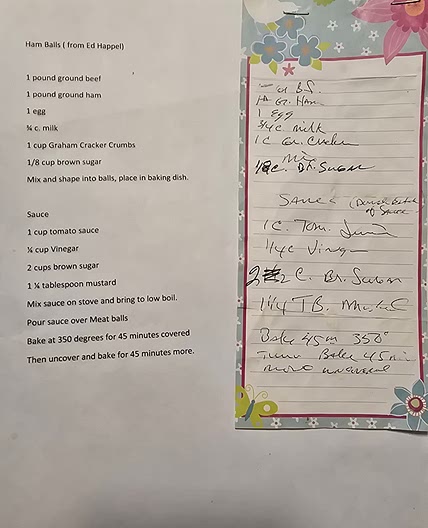 Ham Balls ( from Ed Happel)
1 pound ground beef
1 pound ground ham
1 egg
¾ c. milk
1 cup Graham Cracker Crumbs
1/8 cup brown sugar
Mix and shape into balls, place in baking dish.
Sauce
1 cup tomato sauce
¼ cup Vinegar
2 cups brown sugar
1 ¼ tablespoon mustard
Mix sauce on stove and bring to low boil.
Pour sauce over Meat balls
Bake at 350 degrees for 45 minutes covered
Then uncover and bake for 45 minutes more.
Gr. Ham
1 Egg
3/4 c. milk
1 c Gr. Cracker
Mix
c. Br. Sugar
Sauce (Double batch
of Sauce
1 c. Tom.
1/4 c Vinegar
2 c. Br. Sugar
1 1/4 TB. Mustard
Bake 45 m 350°
Bake 45 min
more uncovered